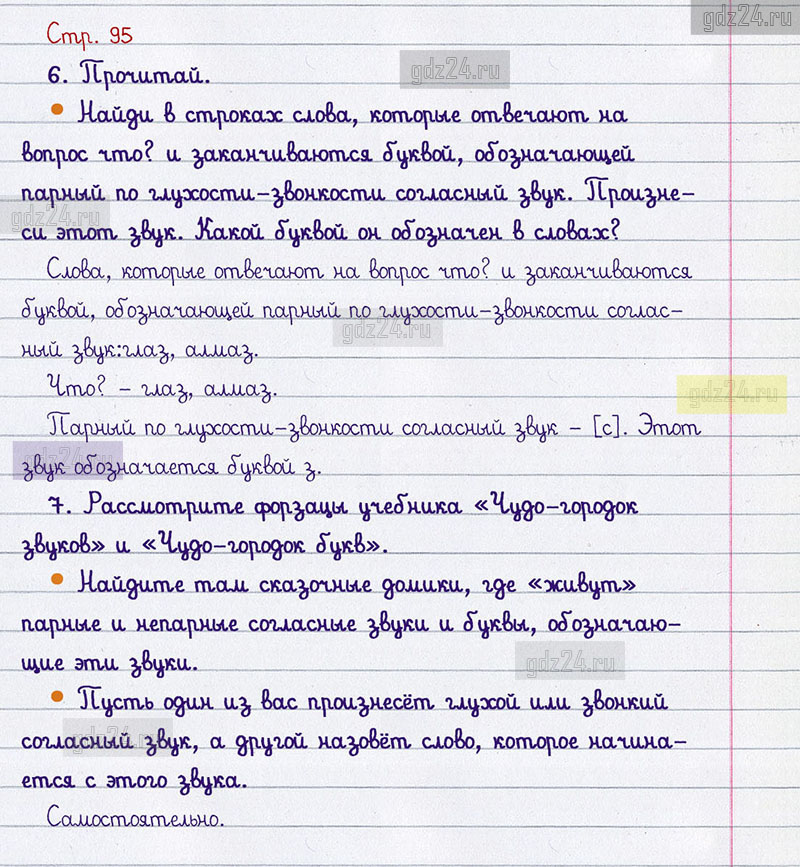 gdz24.ru
Стр. 95
6. Прочитай.
gdz24.ru
Найди в строках слова, которые отвечают на
вопрос что? и заканчиваются буквой, обозначающей
парный по глухости-звонкости согласный звук. Произне-
gdz24.ru
си этот звук. Какой буквой он обозначен в словах?
Слова, которые отвечают на вопрос что? и заканчиваются
буквой, обозначающей парный по глухости-звонкости соглас-
gdz24.ru
ный звук:глаз, алмаз.
Что? - глаз, алмаз.
gdz24.ru
Парный по глухости-звонкости согласный звук - [с]. Этот
gdz24.ru
звук обозначается буквой з.
7. Рассмотрите форзацы учебника «Чудо-городок
звуков» и «Чудо-городок букв».
Найдите там сказочные домики, где «живут»
парные и непарные согласные звуки и буквы, обозначаю-
щие эти звуки.
gdz24.ru
Пусть один из вас произнесёт глухой или звонкий
согласный звук, а другой назовёт слово, которое начина-
gdz24.ru
ется с этого звука.
Самостоятельно.